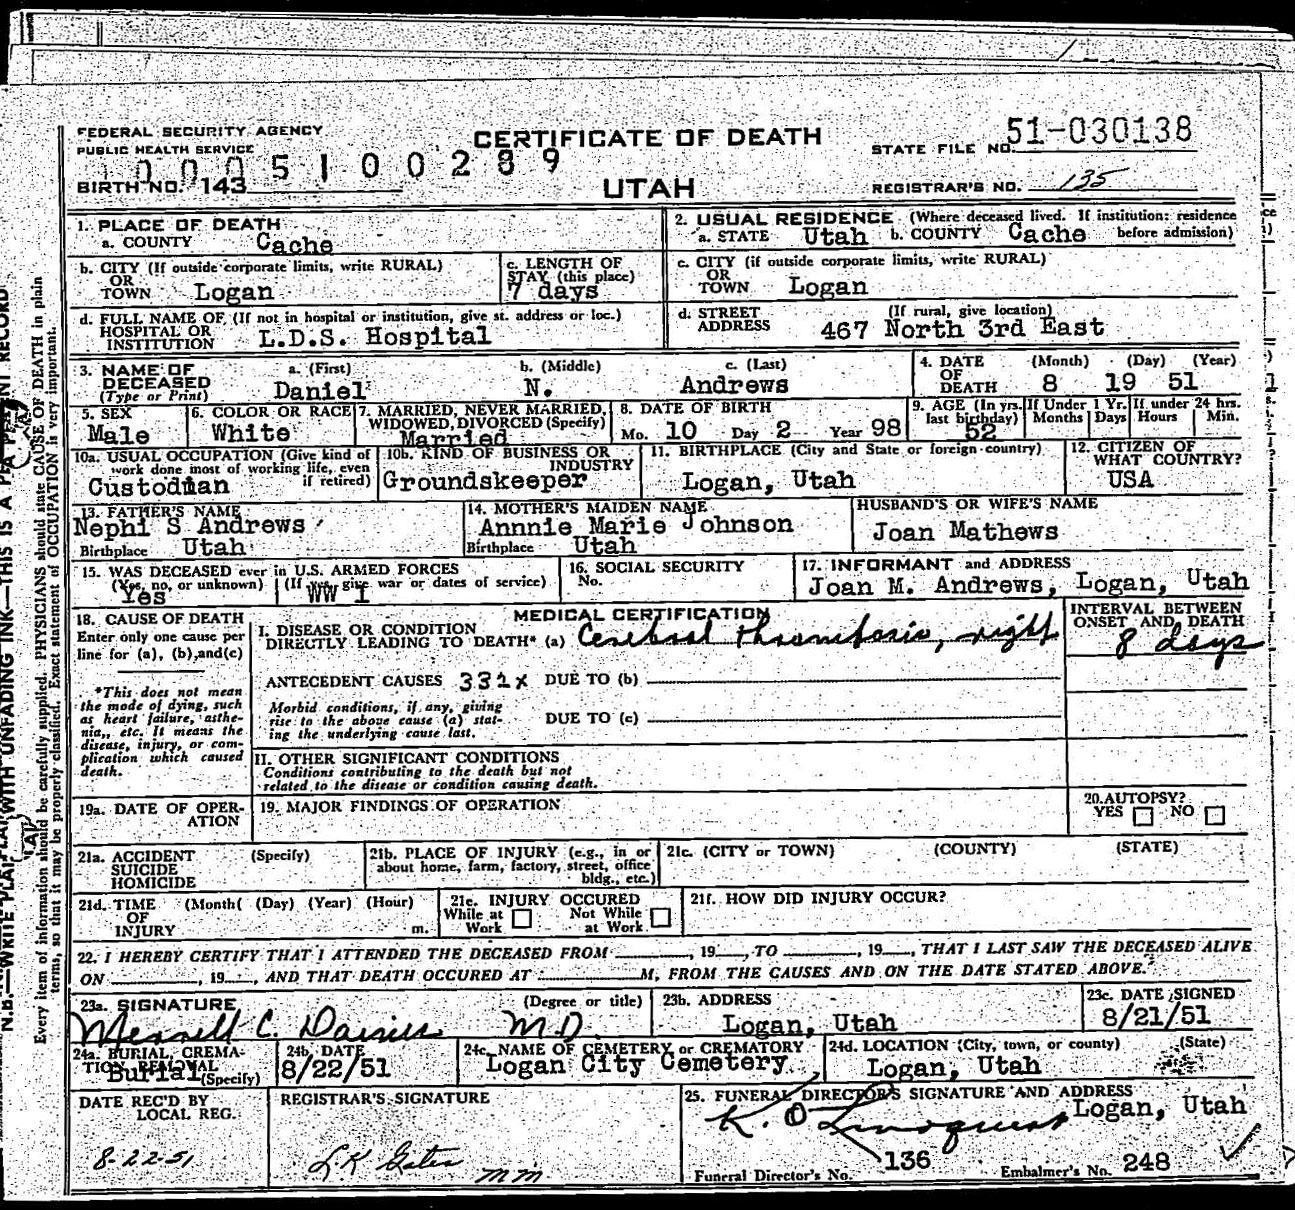 FEDERAL SECURITY AGENCY
PUBLIC HEALTH SERVICE
CERTIFICATE OF DEATH
UTAH
STATE FILE NO. 51-030138
0005100289
BIRTH NO. 143
REGISTRAR'S NO. 135
1. PLACE OF DEATH
a. COUNTY Cache
2. USUAL RESIDENCE (Where deceased lived. If institution: residence before admission)
a. STATE Utah b. COUNTY Cache
b. CITY (If outside corporate limits, write RURAL)
OR
TOWN Logan
c. LENGTH OF
STAY (this place)
7 days
c. CITY (if outside corporate limits, write RURAL)
OR
TOWN Logan
d. FULL NAME OF (If not in hospital or institution, give st. address or loc.)
HOSPITAL OR
INSTITUTION L.D.S. Hospital
d. STREET (If rural, give location)
ADDRESS 467 North 3rd East
3. NAME OF
DECEASED
(Type or Print)
a. (First) b. (Middle) c. (Last)
Daniel N. Andrews
4. DATE (Month) (Day) (Year)
OF
DEATH 8 19 51
5. SEX
Male
6. COLOR OR RACE
White
7. MARRIED, NEVER MARRIED,
WIDOWED, DIVORCED (Specify)
Married
8. DATE OF BIRTH
Mo. 10 Day 2 Year 98
9. AGE (In yrs. last birthday)
52
If Under 1 Yr.
Months Days
If under 24 hrs.
Hours Min.
10a. USUAL OCCUPATION (Give kind of
work done most of working life, even
if retired)
Custodian
10b. KIND OF BUSINESS OR
INDUSTRY
Groundskeeper
11. BIRTHPLACE (City and State or foreign country)
Logan, Utah
12. CITIZEN OF
WHAT COUNTRY?
USA
13. FATHER'S NAME
Nephi S Andrews
Birthplace Utah
14. MOTHER'S MAIDEN NAME
Annnie Marie Johnson
Birthplace Utah
HUSBAND'S OR WIFE'S NAME
Joan Mathews
15. WAS DECEASED ever in U.S. ARMED FORCES
(Yes, no, or unknown) (If yes, give war or dates of service)
Yes WW I
16. SOCIAL SECURITY
No.
17. INFORMANT and ADDRESS
Joan M. Andrews, Logan, Utah
18. CAUSE OF DEATH
Enter only one cause per
line for (a), (b), and (c)
*This does not mean
the mode of dying, such
as heart failure, asthe-
nia,, etc. It means the
disease, injury, or com-
plication which caused
death.
MEDICAL CERTIFICATION
I. DISEASE OR CONDITION
DIRECTLY LEADING TO DEATH* (a) Cerebral thrombosis, right
INTERVAL BETWEEN
ONSET AND DEATH
8 days
ANTECEDENT CAUSES 332x DUE TO (b)
Morbid conditions, if any, giving
rise to the above cause (a) stat-
ing the underlying cause last.
DUE TO (c)
II. OTHER SIGNIFICANT CONDITIONS
Conditions contributing to the death but not
related to the disease or condition causing death.
19a. DATE OF OPER-
ATION
19. MAJOR FINDINGS OF OPERATION
20. AUTOPSY?
YES NO
21a. ACCIDENT (Specify)
SUICIDE
HOMICIDE
21b. PLACE OF INJURY (e.g., in or
about home, farm, factory, street, office
bldg., etc.)
21c. (CITY or TOWN) (COUNTY) (STATE)
21d. TIME (Month( (Day) (Year) (Hour)
OF
INJURY m.
21e. INJURY OCCURED
While at Work Not While at Work
21f. HOW DID INJURY OCCUR?
22. I HEREBY CERTIFY THAT I ATTENDED THE DECEASED FROM , 19 , TO , 19 , THAT I LAST SAW THE DECEASED ALIVE
ON , 19 , AND THAT DEATH OCCURED AT M, FROM THE CAUSES AND ON THE DATE STATED ABOVE.
23a. SIGNATURE (Degree or title)
Merrill C. Daines M.D.
23b. ADDRESS
Logan, Utah
23c. DATE SIGNED
8/21/51
24a. BURIAL, CREMA-
TION, REMOVAL
Burial (Specify)
24b. DATE
8/22/51
24c. NAME OF CEMETERY or CREMATORY
Logan City Cemetery
24d. LOCATION (City, town, or county) (State)
Logan, Utah
DATE REC'D BY
LOCAL REG.
8-22-51
REGISTRAR'S SIGNATURE
mm
25. FUNERAL DIRECTOR'S SIGNATURE AND ADDRESS
K. O Lindquist Logan, Utah
Funeral Director's No. 136 Embalmer's No. 248
N.B.—WRITE PLAINLY WITH UNFADING INK—THIS IS A PERMANENT RECORD
Every item of information should be carefully supplied. PHYSICIANS should state CAUSE OF DEATH in plain
terms, so that it may be properly classified. Exact statement of OCCUPATION is very important.